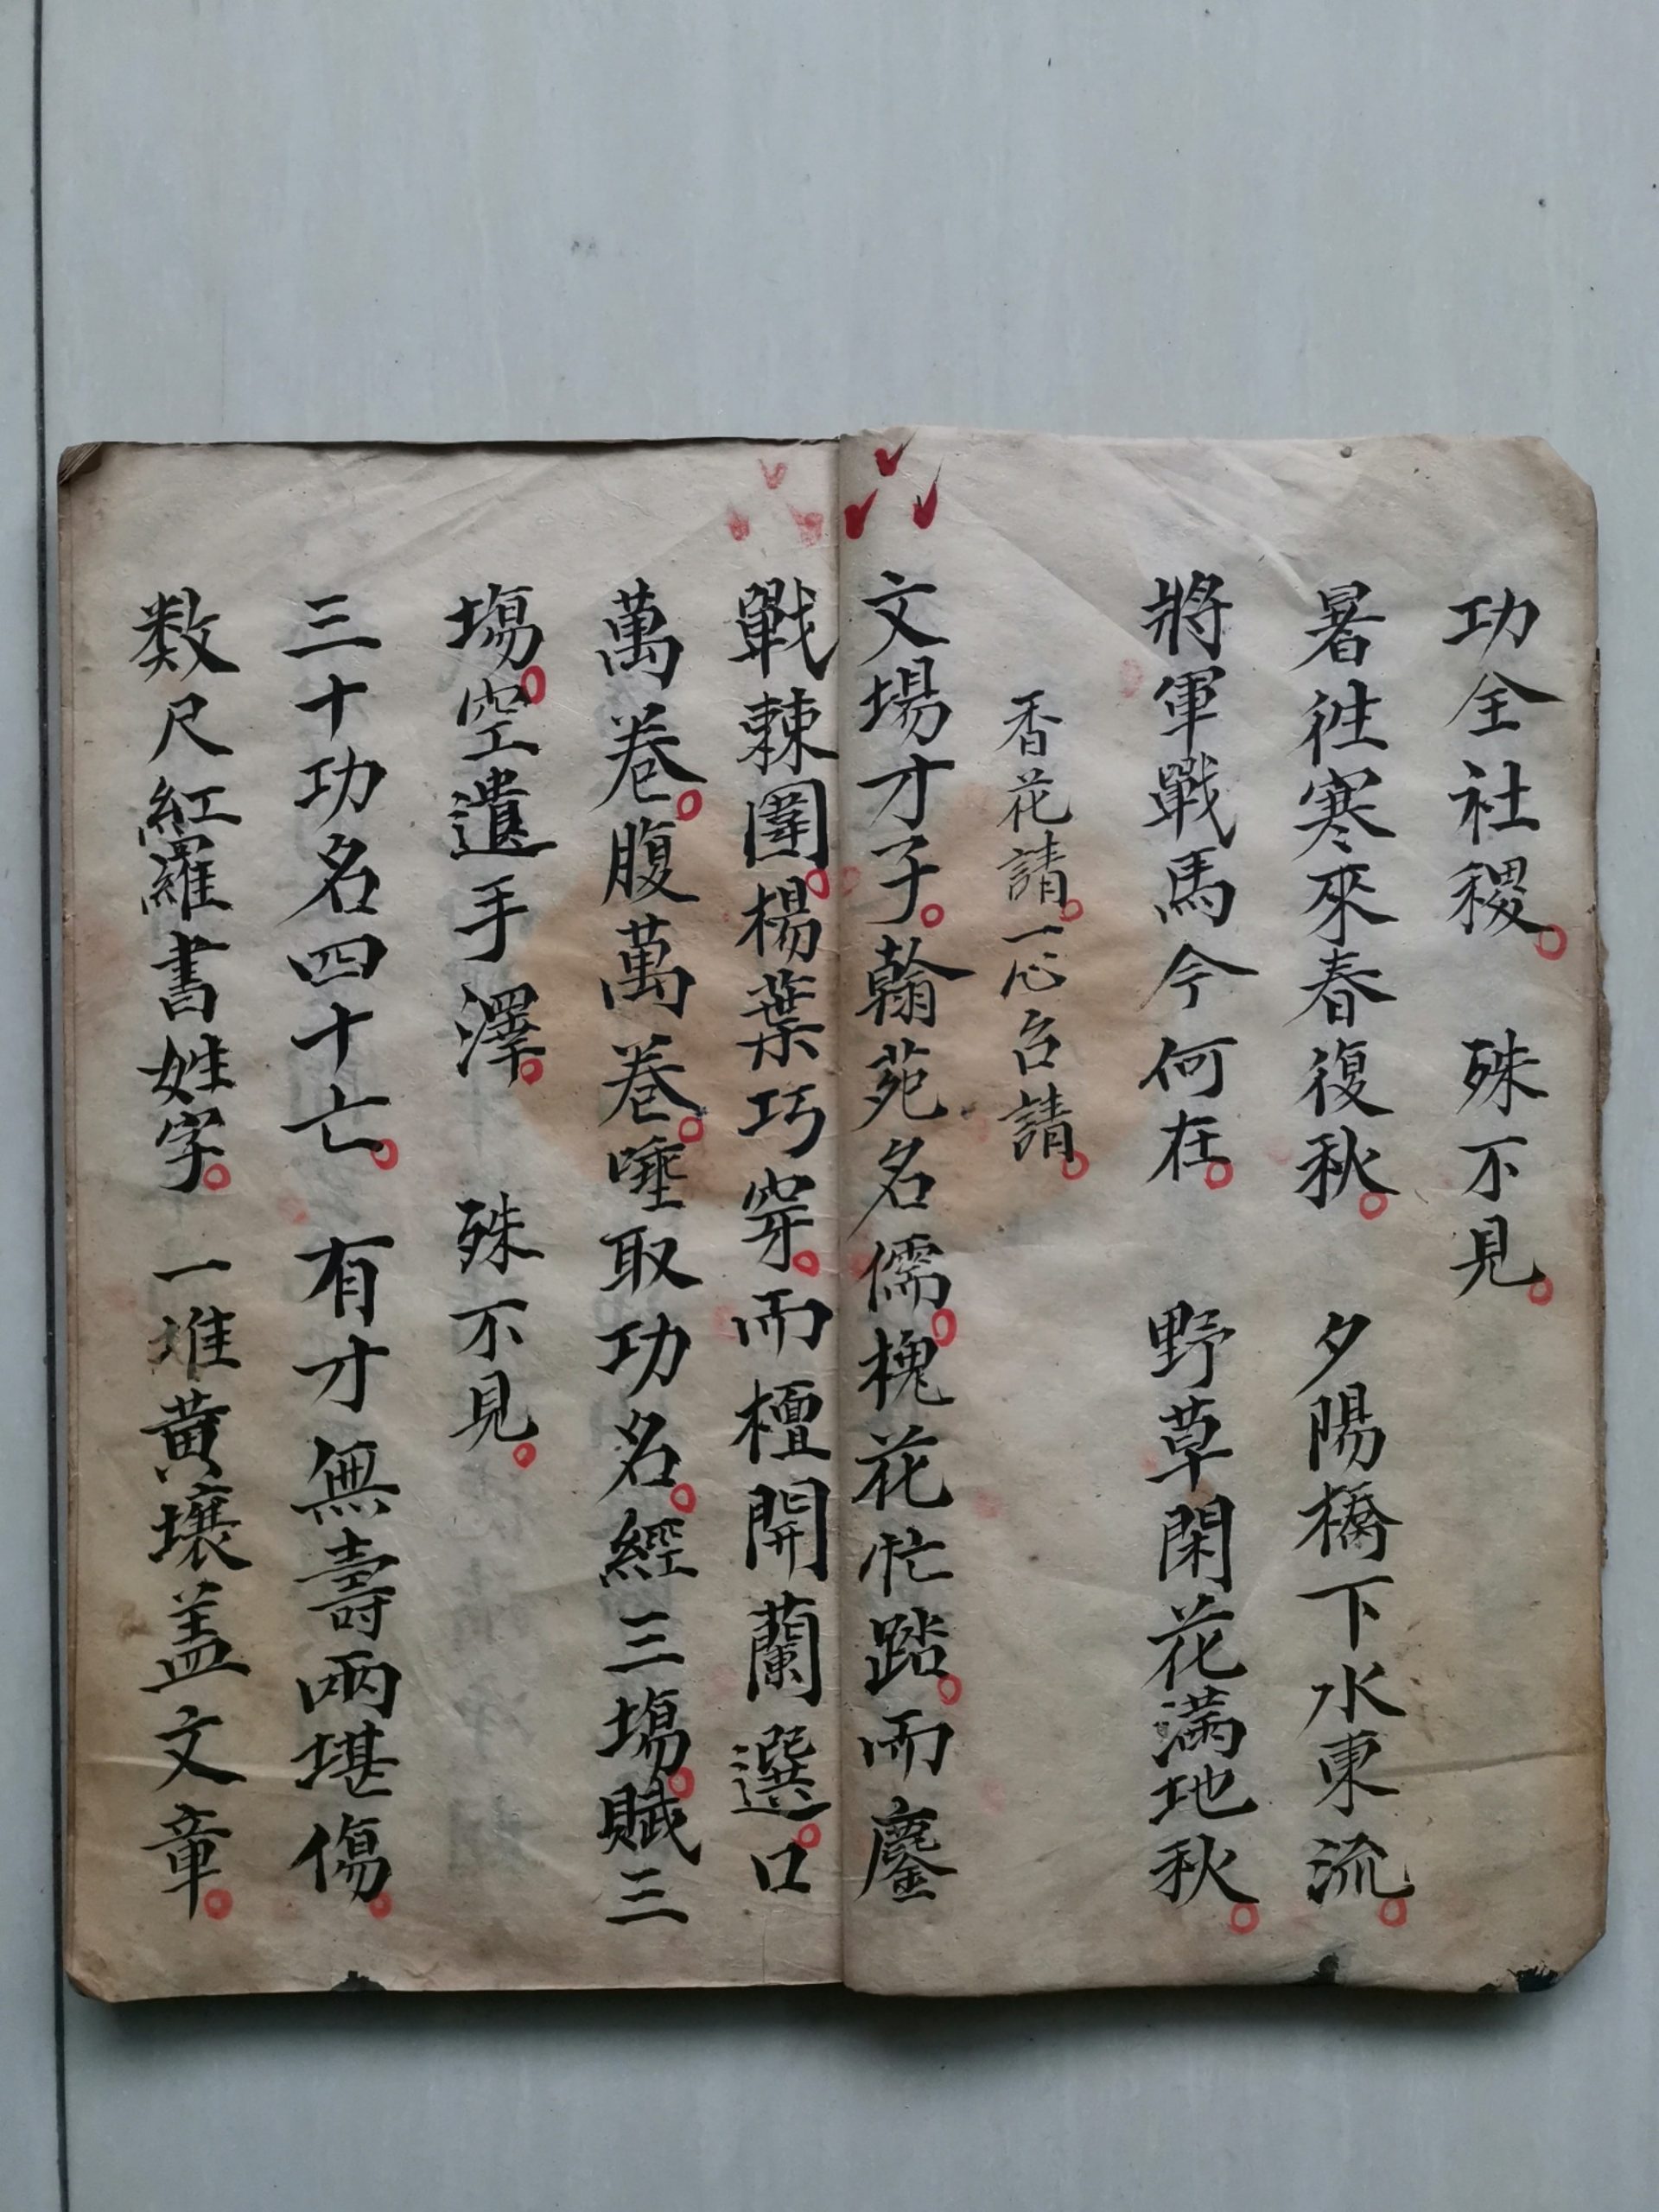 功全社稷。殊不見。
暑徃寒來春復秋。夕陽橋下水東流。
將軍戰馬今何在。野草閑花滿地秋。
香花請。一心召請。
文場才子。翰苑名儒。槐花忙踏。而鏖
戰棘圍。楊葉巧穿。而檀開蘭選。口
萬卷。腹萬卷。唾取功名。經三塲。賦三
塲。空遺手澤。殊不見。
三十功名四十亡。有才無壽兩堪傷。
数尺紅羅書姓字。一堆黄壤盖文章。